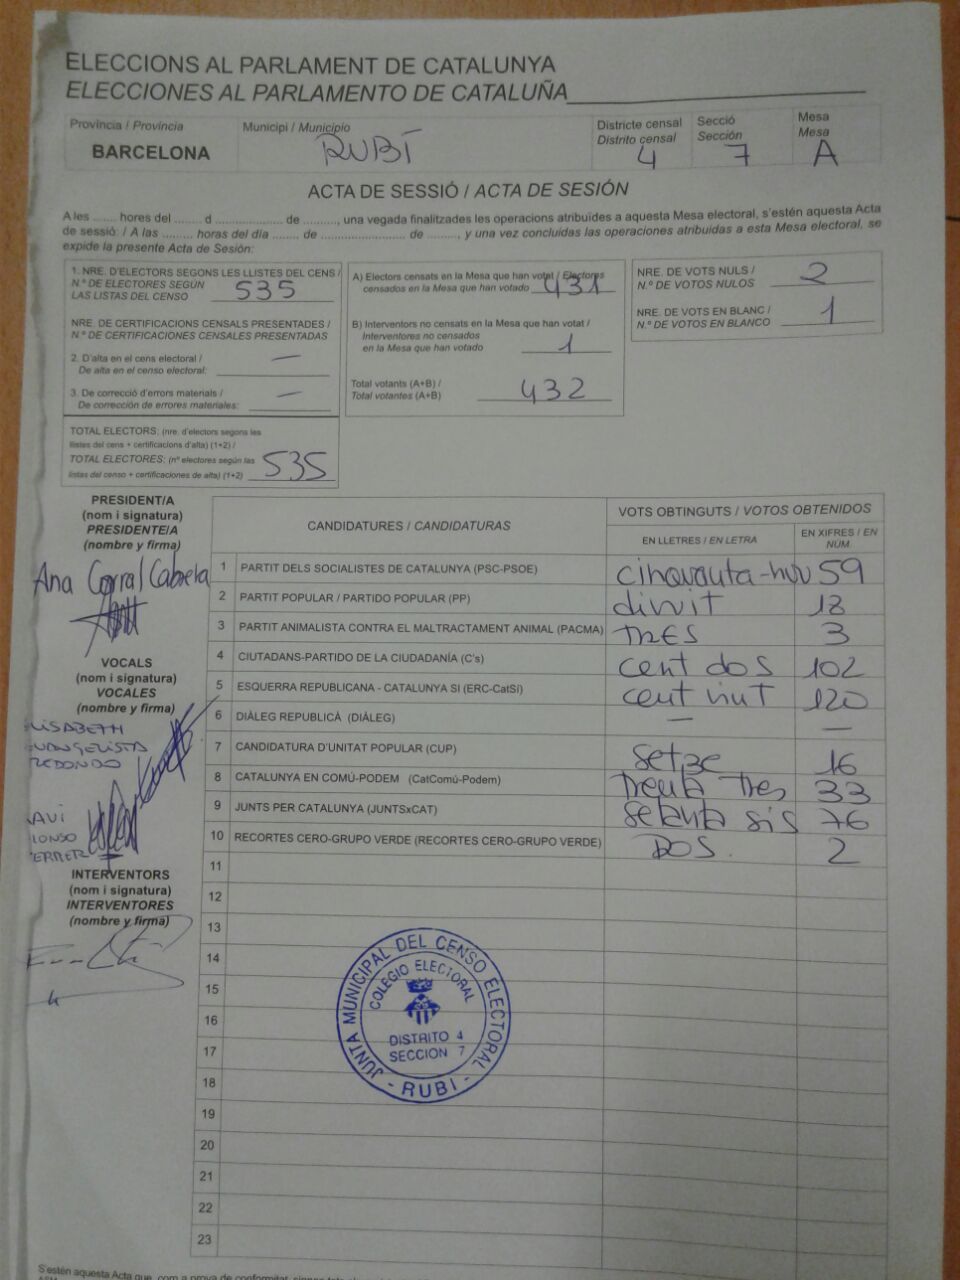 ELECCIONS AL PARLAMENT DE CATALUNYA
ELECCIONES AL PARLAMENTO DE CATALUÑA
Província / Provincia
BARCELONA
Municipi / Municipio
RUBÍ
Districte censal
Distrito censal
4
Secció
Sección
7
Mesa
Mesa
A
ACTA DE SESSIÓ / ACTA DE SESIÓN
A les ........ hores del ........ d .................... de .........., una vegada finalitzades les operacions atribuïdes a aquesta Mesa electoral, s'estén aquesta Acta
de sessió: / A las ......... horas del día ....... de ....................... de ........, y una vez concluidas las operaciones atribuidas a esta Mesa electoral, se
expide la presente Acta de Sesión:
1. NRE. D'ELECTORS SEGONS LES LLISTES DEL CENS /
N.º DE ELECTORES SEGÚN
LAS LISTAS DEL CENSO 535
NRE. DE CERTIFICACIONS CENSALS PRESENTADES /
N.º DE CERTIFICACIONES CENSALES PRESENTADAS
2. D'alta en el cens electoral / —
De alta en el censo electoral:
3. De correcció d'errors materials / —
De corrección de errores materiales:
TOTAL ELECTORS: (nre. d'electors segons les
llistes del cens + certificacions d'alta) (1+2) /
TOTAL ELECTORES: (nº electores según las
listas del censo + certificaciones de alta) (1+2) 535
A) Electors censats en la Mesa que han votat / Electores
censados en la Mesa que han votado 431
B) Interventors no censats en la Mesa que han votat /
Interventores no censados
en la Mesa que han votado 1
Total votants (A+B) /
Total votantes (A+B) 432
NRE. DE VOTS NULS /
N.º DE VOTOS NULOS 2
NRE. DE VOTS EN BLANC /
N.º DE VOTOS EN BLANCO 1
PRESIDENT/A
(nom i signatura)
PRESIDENTE/A
(nombre y firma)
Ana Corral Cabrera
VOCALS
(nom i signatura)
VOCALES
(nombre y firma)
REDONDO
INTERVENTORS
(nom i signatura)
INTERVENTORES
(nombre y firma)
CANDIDATURES / CANDIDATURAS
VOTS OBTINGUTS / VOTOS OBTENIDOS
EN LLETRES / EN LETRA
EN XIFRES / EN NÚM.
1 PARTIT DELS SOCIALISTES DE CATALUNYA (PSC-PSOE) cinquanta-nou 59
2 PARTIT POPULAR / PARTIDO POPULAR (PP) divuit 18
3 PARTIT ANIMALISTA CONTRA EL MALTRACTAMENT ANIMAL (PACMA) TRES 3
4 CIUTADANS-PARTIDO DE LA CIUDADANÍA (C's) cent dos 102
5 ESQUERRA REPUBLICANA - CATALUNYA SI (ERC-CatSí) cent vint 120
6 DIÀLEG REPUBLICÀ (DIÀLEG) — —
7 CANDIDATURA D'UNITAT POPULAR (CUP) setze 16
8 CATALUNYA EN COMÚ-PODEM (CatComú-Podem) Trenta Tres 33
9 JUNTS PER CATALUNYA (JUNTSxCAT) setanta sis 76
10 RECORTES CERO-GRUPO VERDE (RECORTES CERO-GRUPO VERDE) DOS. 2
11
12
13
14
15
16
17
18
19
20
21
22
23
JUNTA MUNICIPAL DEL CENSO ELECTORAL
COLEGIO ELECTORAL
DISTRITO 4
SECCION 7
- RUBI -
S'estén aquesta Acta que, com a prova de conformitat, signen